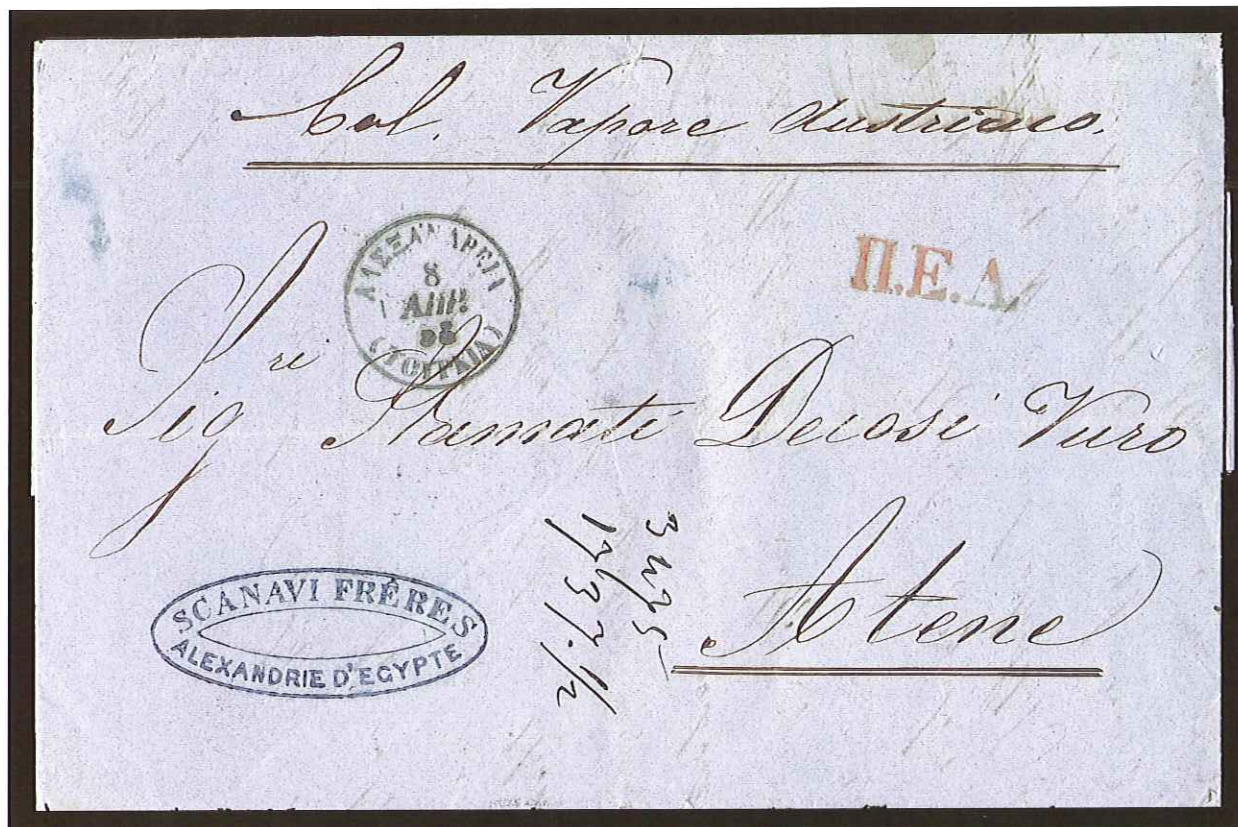 Col. Vapore Austriaco.
ΑΛΕΞΑΝΔΡΕΙΑ
8
ΑΠΡ.
(ΤΟΥΡΚΙΑ)
Π.Ε.Δ.
Sig.ri Stamati Decosi Vuro
Atene
SCANAVI FRÈRES
ALEXANDRIE D'EGYPTE